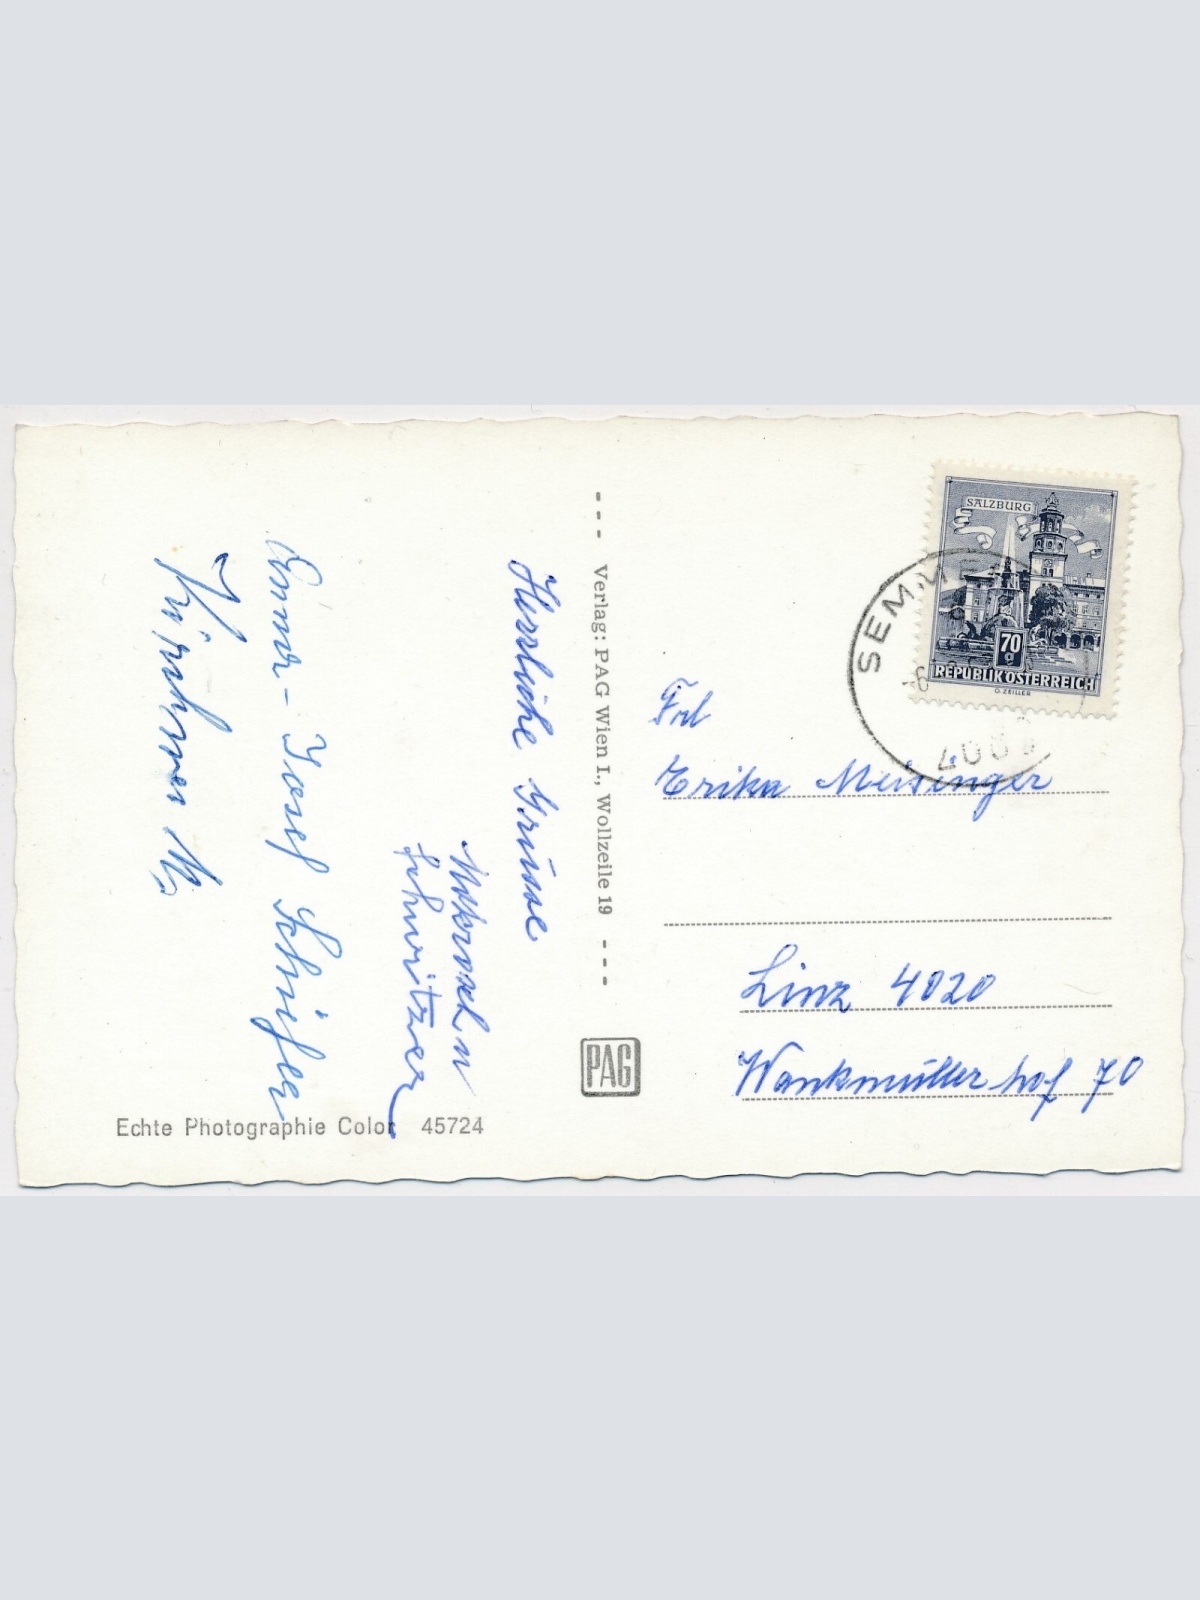 Herzliche Grüsse
Schweitzer
Erna - Josef
Kirchner M.
Verlag: PAG Wien I., Wollzeile 19
PAG
Echte Photographie Color 45724
SALZBURG
70
g
REPUBLIK ÖSTERREICH
O. ZEILLER
SEMM
Frl
Erika Meisinger
Linz 4020
Wankmüllerhof 70